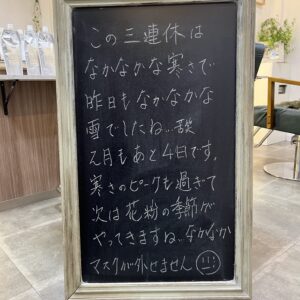 この三連休は
なかなかな寒さで
昨日もなかなかな
雪でしたね…笑
2月もあと4日です。
寒さのピークも過ぎて
次は花粉の季節が
やってきますね…なかなか
マスクが外せません